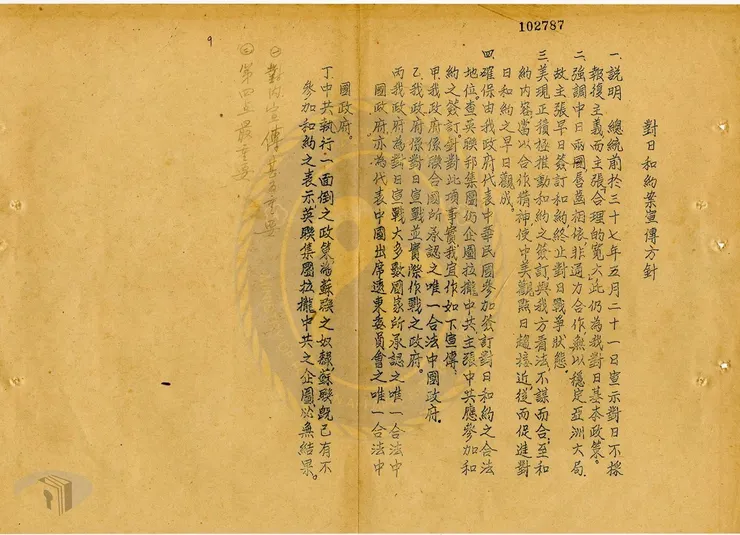 102787
對日和約案宣傳方針
一、說明 總統前於三十七年五月二十一日宣示對日不採
報復主義，而主張合理的寬大，此仍為我對日基本政策。
二、強調中日兩國唇齒相依，非通力合作無以穩定亞洲大局，
故主張早日簽訂和約終止對日戰爭狀態。
三、美現正積極推動和約之簽訂與我方看法不謀而合，至和
約內容當以合作精神使中美觀點日趨接近，從而促進對
日和約之早日觀成。
四、確保由我政府代表中華民國參加簽訂對日和約之合法
地位。查英聯邦集團仍企圖拉攏中共，主張中共應參加和
約之簽訂，針對此項事實我宜作如下宣傳：
甲、我政府係聯合國所承認之唯一合法中國政府。
乙、我政府係對日宣戰並實際作戰之政府。
丙、我政府為對日宣戰大多數國家所承認之唯一合法中
國政府，亦為代表中國出席遠東委員會之唯一合法中
國政府。
丁、中共執行一面倒之政策為蘇聯之奴隸，蘇聯既已有不
參加和約之表示，英聯集團拉攏中共之企圖，必無結果。
㊀對內宣傳甚為重要
㊁第四點最重要
9